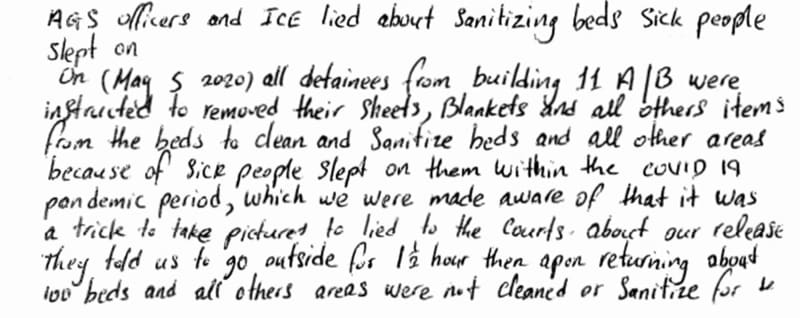 AGS officers and ICE lied about Sanitizing beds Sick people
Slept on
On (May 5 2020) all detainees from building 11 A/B were
instructed to removed their Sheets, Blankets and all others items
from the beds to clean and Sanitize beds and all other areas
because of Sick people Slept on them within the COVID 19
pandemic period, which we were made aware of that it was
a trick to take pictures to lied to the Courts. about our release
They told us to go outside for 1½ hour then apon returning about
100 beds and all others areas were not Cleaned or Sanitize for